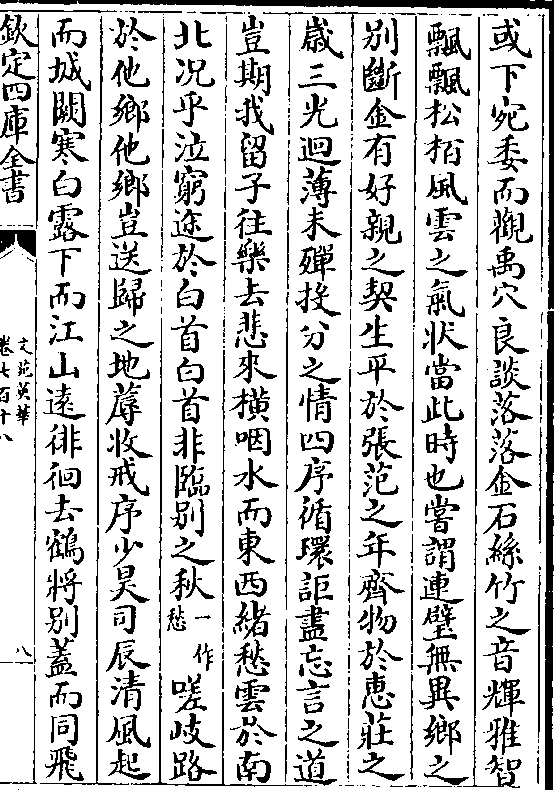 或下宛委而觀禹穴良談落落金石絲竹之音輝雅智
飄飄松栢風雲之氣狀當此時也嘗謂連璧無異鄉之
别斷金有好親之契生平於張范之年齊物於惠莊之
嵗三光迴薄未殫投分之情四序循環詎盡忘言之道
豈期我留子往樂去悲來横咽水而東西緒愁雲於南
北况乎泣窮途於白首白首非臨别之秋一作愁嗟岐路
於他鄉他鄉豈送歸之地蓐收戒序少昊司辰清風起
而城闕寒白露下而江山逺徘徊去鶴將别蓋而同飛
欽定四庫全書
文苑英華
卷七百十八
八